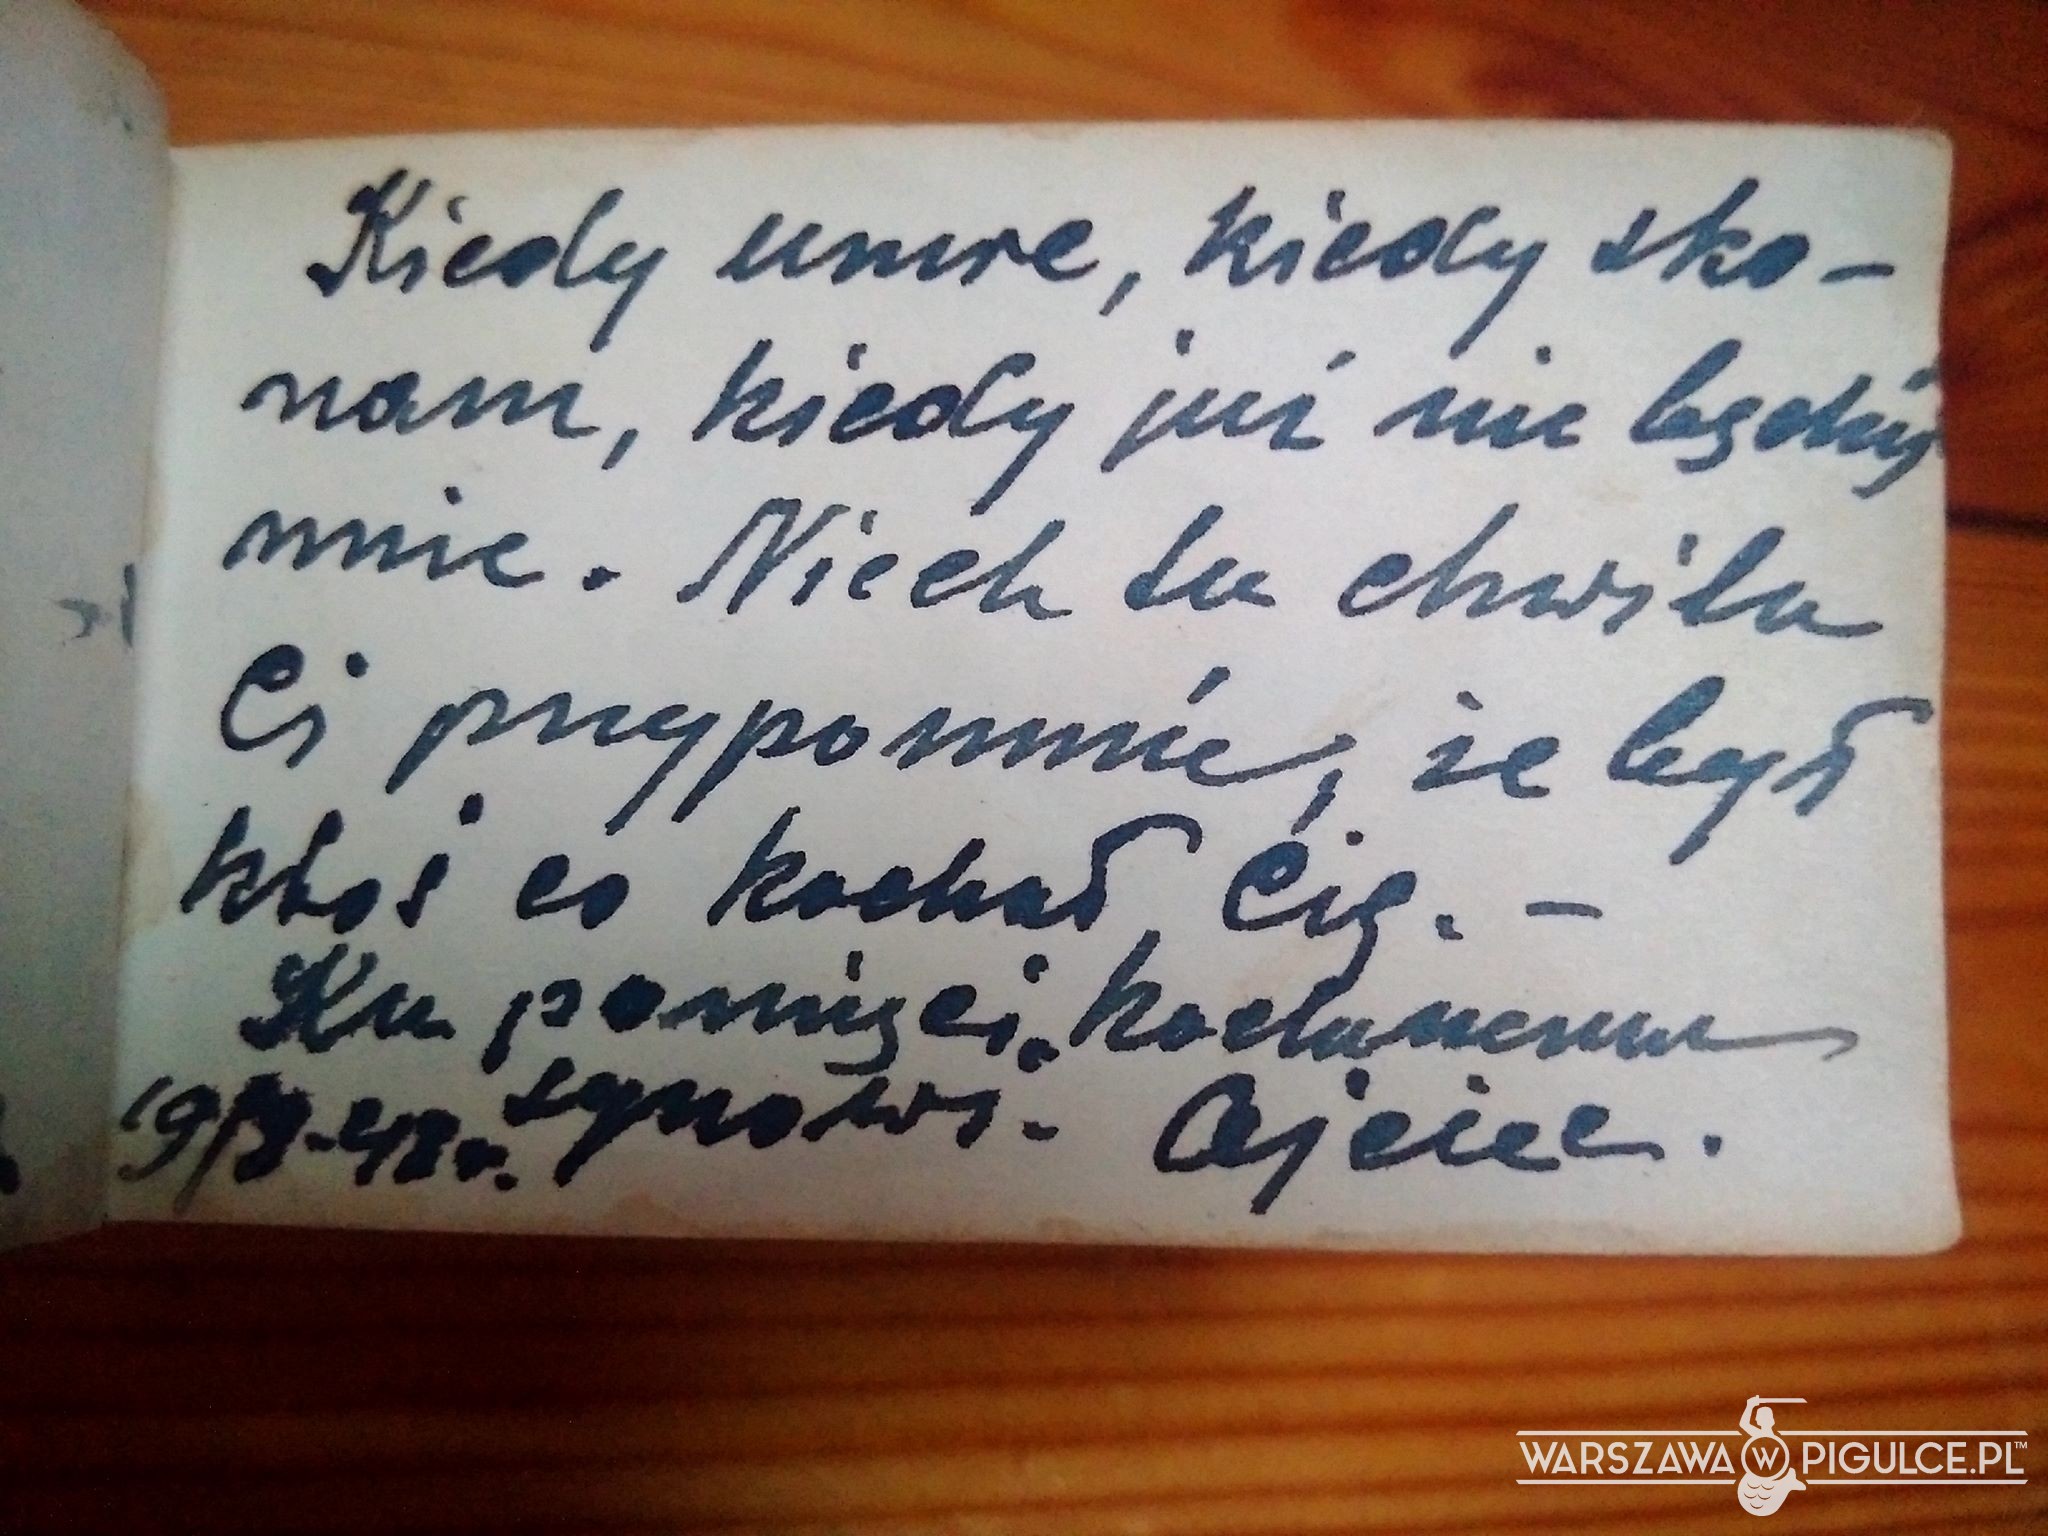 Kiedy umre, kiedy sko-
nam, kiedy już nie będziż
mnie. Niech ta chwila
Ci przypomnić, że był
ktoś co kochał Cię. -
Ku pamięci. kochanemu
synowi.
19/8-48r.
Ojciec.
WARSZAWA W PIGULCE.PL™